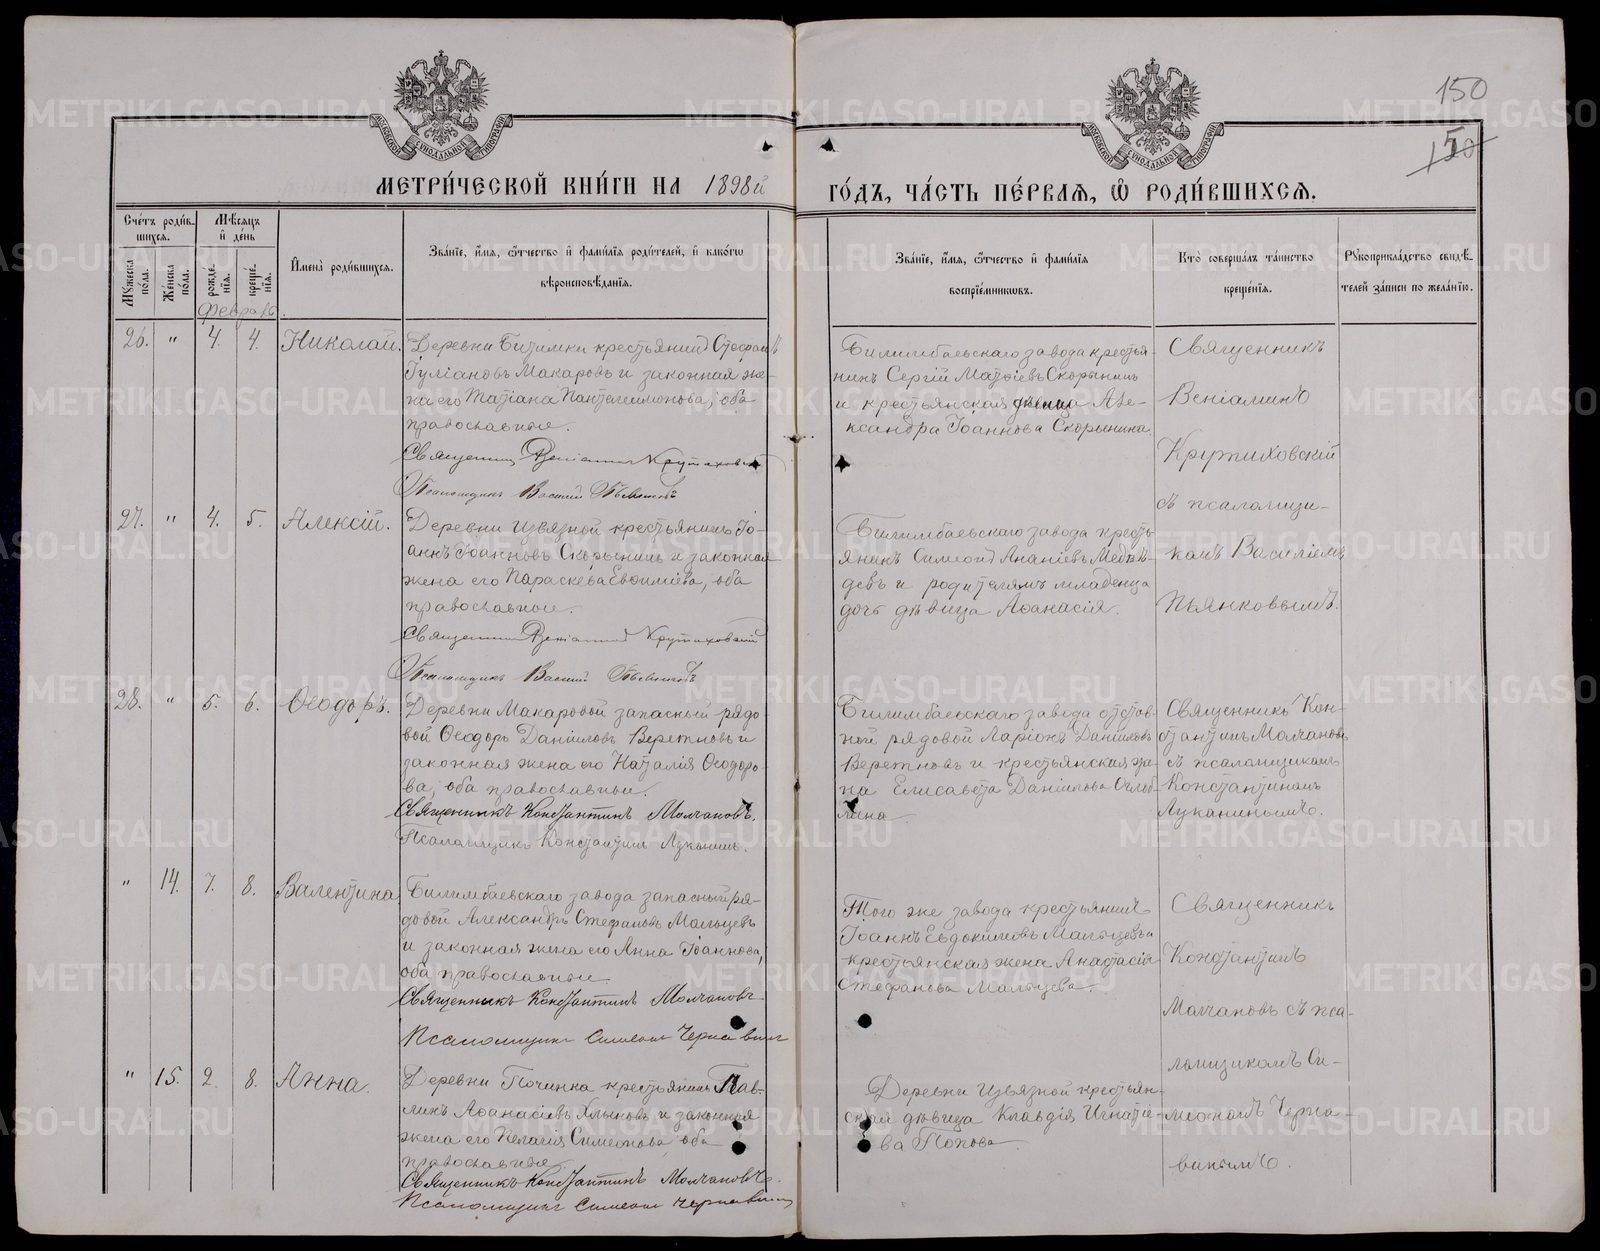 150
150
МЕТРИ́ЧЕСКОЙ КНИ́ГИ НА 1898й
ГО́ДЪ, ЧА́СТЬ ПЕ́РВАЯ, Ѿ РОДИ́ВШИХСЯ.
Сче́тъ роди́в-
шихся.
Мѣ́сяцъ
и҆ де́нь
Мꙋ́жеска по́ла.
Же́нска по́ла.
рожде́нїя.
креще́нїя.
Февраль.
И҆мена̀ роди́вшихся.
Зва́нїе, и҆́мя, ѻ҆́тчество и҆ фами́лїя роди́телей, и҆ како́гѡ
вѣроисповѣ́данїя.
Зва́нїе, и҆́мя, ѻ҆́тчество и҆ фами́лїя
воспрїе́мниковъ.
Кто̀ соверша́лъ та́инство
креще́нїя.
Рꙋкоприкла́дство свидѣ́-
телей за́писи по жела́нїю.
26. " 4. 4. Николай.
Деревни Битимки крестьянинъ Стефанъ
Іуліановъ Макаровъ и законная же-
на его Татіана Пантелеимонова, оба
православные.
Священникъ Веніаминъ Крутиховскій
Псаломщикъ Василій Пьянковъ
Билимбаевскаго завода крестья-
нинъ Сергій Матѳіевъ Скорынинъ
и крестьянская дѣвица Але-
ксандра Іоаннова Скорынина.
Священникъ
Веніаминъ
Крутиховскій
съ псаломщи-
комъ Василіемъ
Пьянковымъ.
27. " 4. 5. Алексій.
Деревни Извязной крестьянинъ Іо-
аннъ Іоанновъ Скорынинъ и законная
жена его Параскева Евѳиміева, оба
православные.
Священникъ Веніаминъ Крутиховскій
Псаломщикъ Василій Пьянковъ
Билимбаевскаго завода кресть-
янинъ Симеонъ Ананіевъ Медвѣ-
девъ и родителямъ младенца
дочь дѣвица Аѳанасія.
28. " 5. 6. Ѳеодоръ.
Деревни Макаровой запасный рядо-
вой Ѳеодоръ Даніиловъ Веретновъ и
законная жена его Наталія Ѳеодоро-
ва, оба православные.
Священникъ Константинъ Молчановъ.
Псаломщикъ Константинъ Луканинъ.
Билимбаевскаго завода отстав-
ной рядовой Ларіонъ Даніиловъ
Веретновъ и крестьянская же-
на Елисавета Даніилова
Священникъ Кон-
стантинъ Молчановъ
съ псаломщикомъ
Константиномъ
Луканинымъ.
" 14. 7. 8. Валентина
Билимбаевскаго завода запасный ря-
довой Александръ Стефановъ Мальцевъ
и законная жена его Анна Іоаннова,
оба православные.
Священникъ Константинъ Молчановъ
Псаломщикъ Симеонъ Чернавинъ
Того же завода крестьянинъ
Іоаннъ Евдокимовъ Мальцевъ и
крестьянская жена Анастасія
Стефанова Мальцева.
Священникъ
Константинъ
Молчановъ съ пса-
ломщикомъ Си-
меономъ Черна-
винымъ.
" 15. 2. 8. Анна.
Деревни Починка крестьянинъ Пав-
линъ Аѳанасіевъ Ялунинъ и законная
жена его Пелагія Симеонова, оба
православные.
Священникъ Константинъ Молчановъ.
Псаломщикъ Симеонъ Чернавинъ
Деревни Извязной крестьян-
ская дѣвица Клавдія Игнатіе-
ва Попова
METRIKI.GASO-URAL.RU